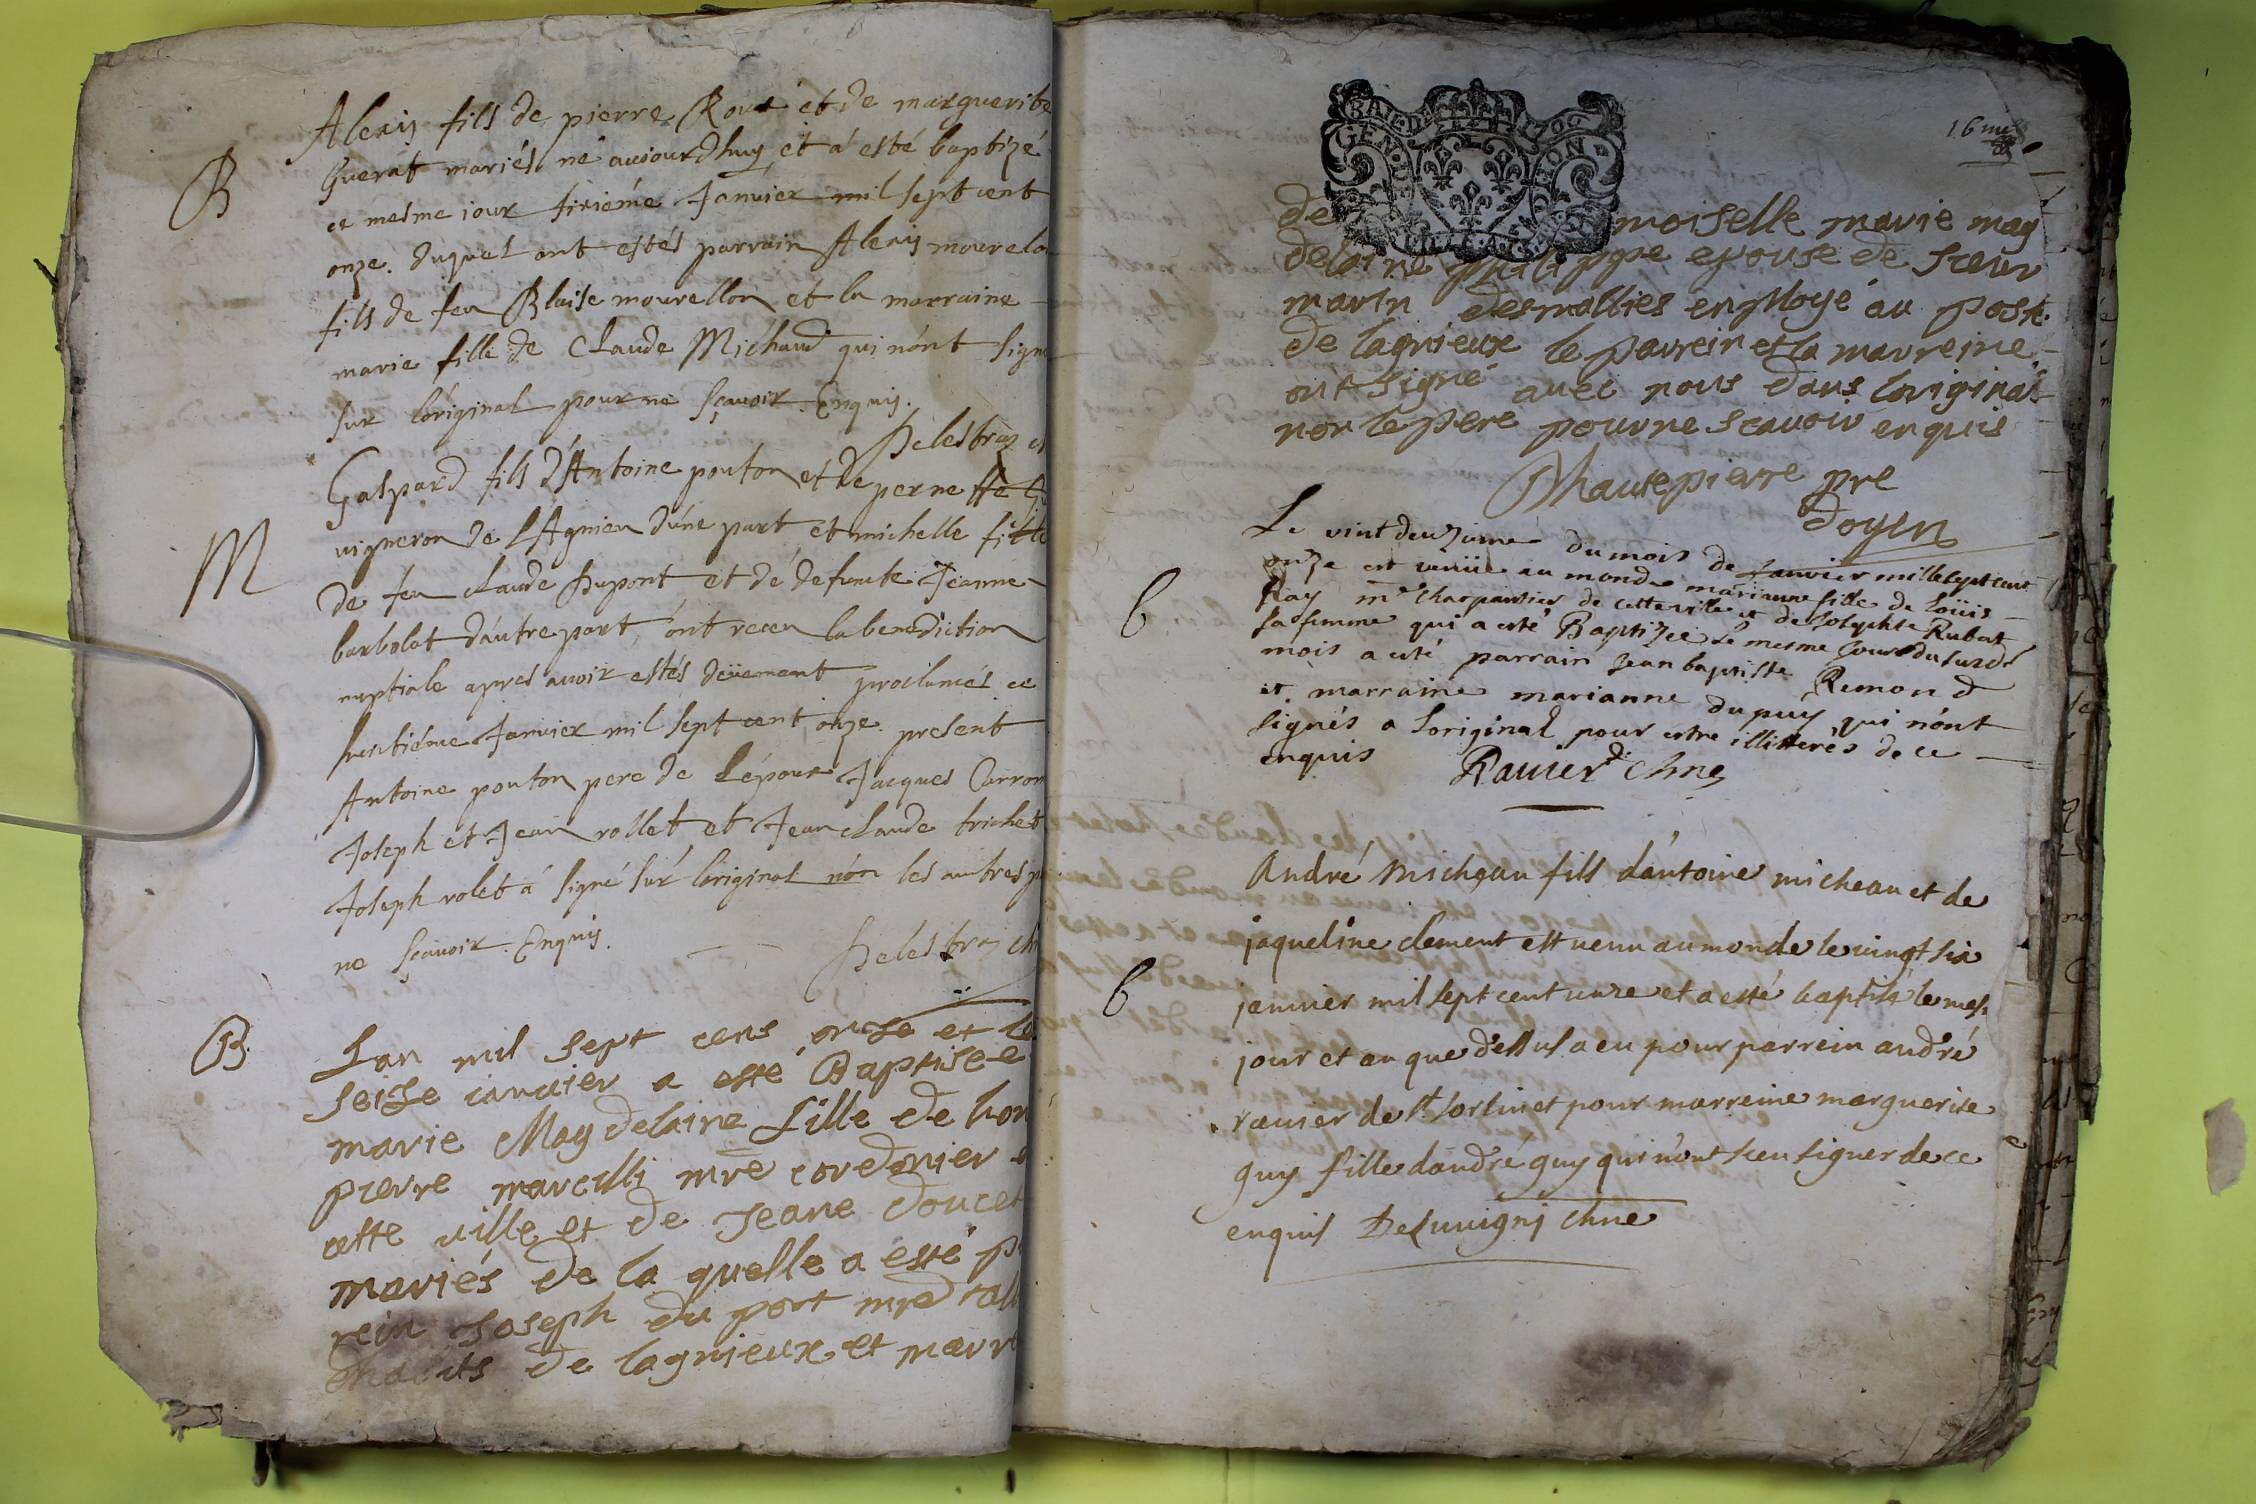 B
Alexis fills de pierre Roux et de marguerite
Guerat mariés né auiourdhuy et a esté baptizé
ce mesme iour sixiéme Januier mil sept cent
onze. duquel ont estés parrain Alexis mourelon
fils de feu Blaise mourellon et la marraine
marie fille de Claude Michaud qui nónt signé
sur lóriginal pour ne sçauoir Enquis.
Delesbros
M
Gaspard fils d'Antoine pouton et de pernette
vigneron de LAgnieu d'une part et michelle fille
de feu claude Dupont et dé defuncte Jeanne
barbolat dáutre part, ónt receu la benediction
nuptiale apres auoir estés deüement proclamés ce
huictiéme Januier mil sept cent onze. present
Antoine pouton pere de Lépoux Jacques Carron
Joseph et Jean rollet et Jean claude trichet
Joseph rolet á signé sur loriginal nón les autres p
ne sçauoir Enquis.
Delesbros
B
Lan mil sept cens onze et le
seize ianuier a esté Baptisée
marie Magdelaine fille de hon
pierre marcilli mre cordonier
cette uille et de Jeane doucet
mariés de la quelle a esté p
rein Joseph du port mre tall
dhabits de lagnieux et marr
GEN
16
de moiselle marie mag
delaine philippe epouse de sieur
marin desmallies employé au poste
de lagnieux le parrein et la marreine
ont signé auec nous dans loriginal
non le pere pour ne scauoir enquis
Hautepierre pre
doyen
b
Le vint deuzieme du mois de Januier mille sept cent
onze est venüe au monde marianne fille de Loüis
Ray me charpantier de cette ville et de Josephte Rubat
sa femme qui a esté Baptizée le mesme Jour du susdt
mois a esté parrain Jean baptiste Remond
et marraine marianne dupuy qui nónt
signés a Loriginal pour estre illitterés de ce
enquis Rauier chne
b
André Micheau fils dántoine micheau et de
jaqueline clement est venu au monde le uingt six
januier mil sept cent unze et a esté baptisé le mes.
jour et an que dessus a eu pour parrein andré
rauier de st sorlin et pour marreine marguerite
guy fille dandré guy qui nónt sceu signer de ce
enquis Deluuigni chne